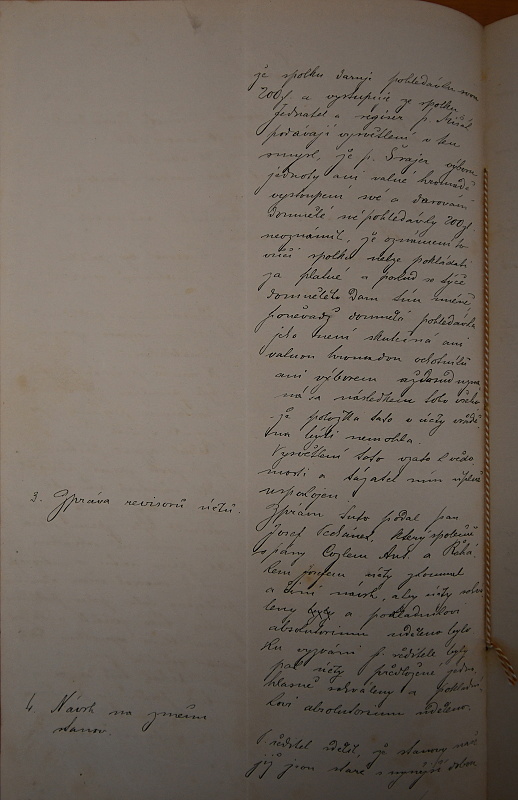 že spolku daruje pohledávku svou
200zl a vystupuje ze spolku.
Jednatel a regisér p. Mišák
podávají vysvětlení v ten
smysl, že p. Šrajer výboru
jednoty ani valné hromadě
vystoupení své a darování
domnělé né pohledávky 200zl
neoznámil, že oznámení
vůči spolku nelze pokládati
za platné a pokud se týče
domnělého daru
poněvadž domnělá pohledávka
jeho není skutečná ani
valnou hromadou ochotníků
ani výborem uzna
ná a následkem toho
že položka tato v účty
na býti nemohla.
Vysvětlení toto vzato k vědo
mosti a tázatel ním úplně
uspokojen.
3. Zpráva revisorů účtů.
Zprávu tuto podal pan
Josef který společně
s pány Ant. a
kem Josefem účty zkoumal
a činí návrh, aby účty schvá
leny byly a pokladníkovi
absolutorium uděleno bylo.
Ku vyzvání p. ředitele byly
pak účty předložené jedno
hlasně schváleny a pokladní
kovi absolutorium uděleno.
4. Návrh na změnu
stanov.
P. ředitel sdělil, že stanovy naše
již jsou staré a nynější době